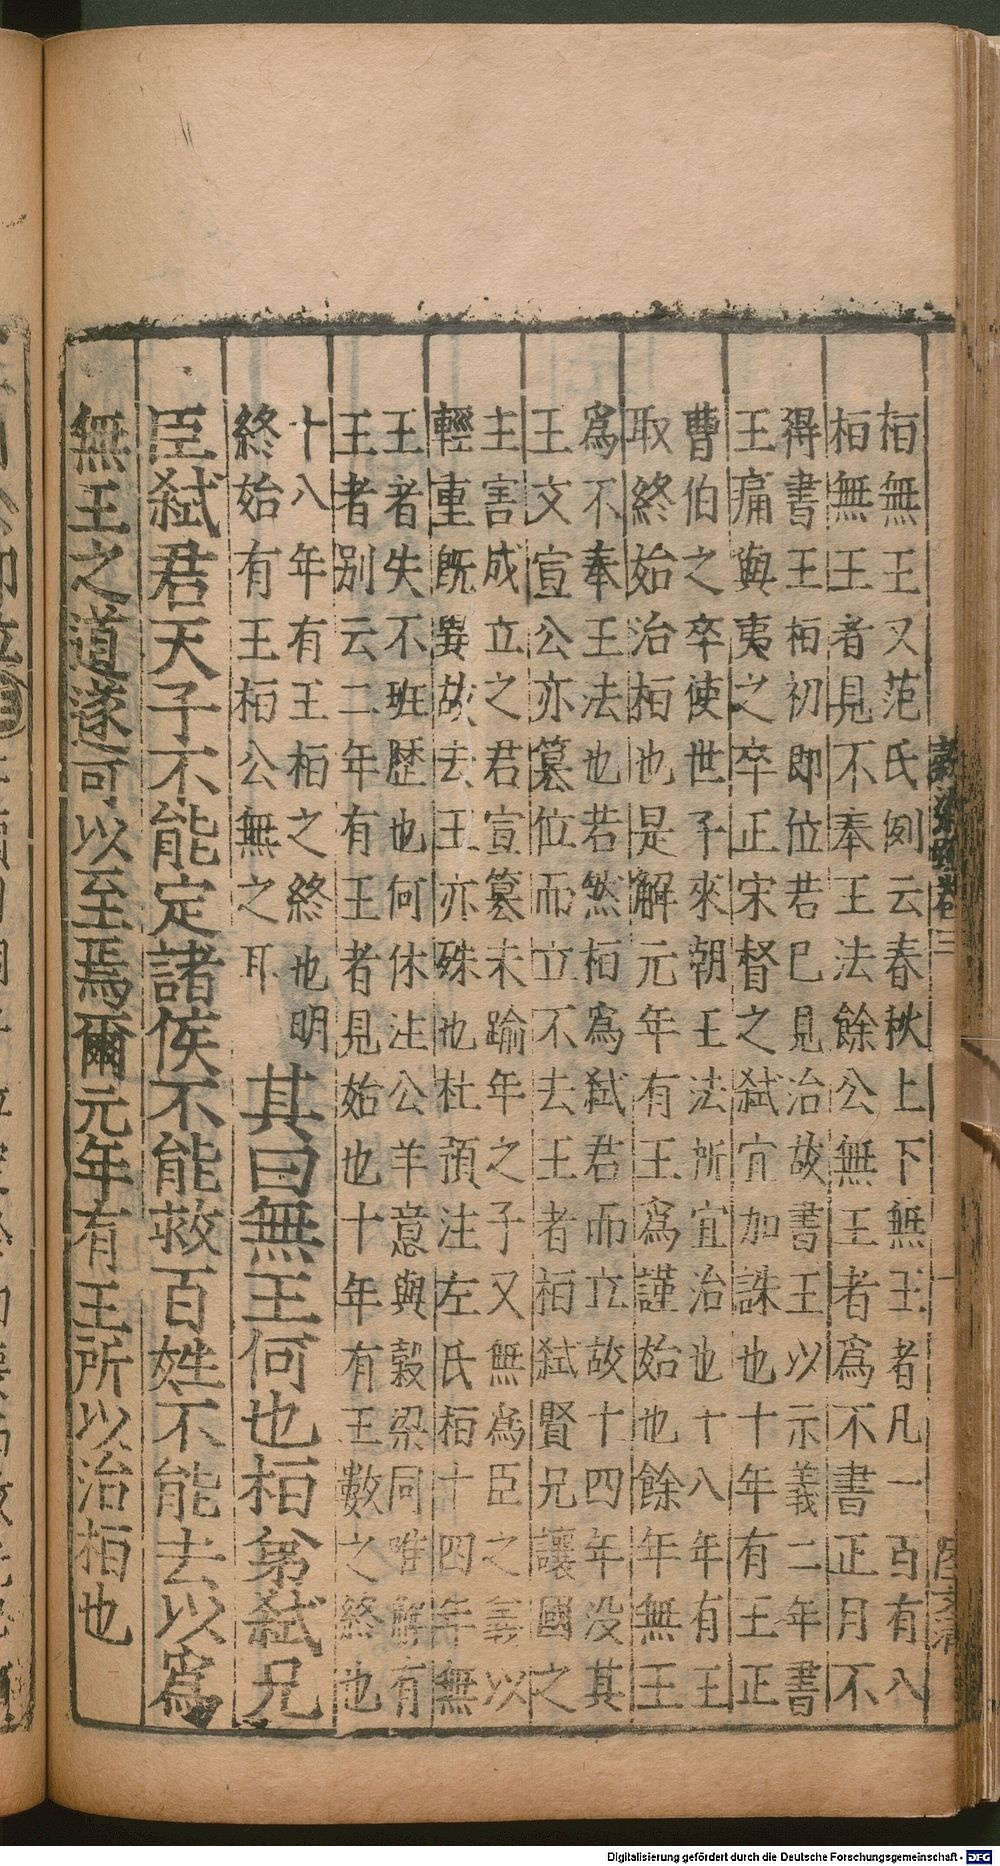 桓無王又范氏例云春秋上下無王者凡一百有八
桓無王者見不奉王法餘公無王者為不書正月不
得書王桓初即位若巳見治故書王以示義二年書
王痛與夷之卒正宋督之弑宜加誅也十年有王正
曹伯之卒使世子來朝王法所宜治也十八年有王
取終始治桓也是解元年有王為謹始也餘年無王
為不奉王法也若然桓為弑君而立故十四年没其
王文宣公亦篡位而立不去王者桓弑賢兄讓國之
主害成立之君宣篡未踰年之子又無為臣之義以
輕重既異故去王亦殊也杜預注左氏桓十四年無
王者失不班歷也何休注公羊意與穀梁同唯解有
王者别云二年有王者見始也十年有王數之終也
十八年有王桓之終也明
終始有王桓公無之耳
其曰無王何也桓弟弑兄
臣弑君天子不能定諸侯不能救百姓不能去以為
無王之道遂可以至焉爾元年有王所以治桓也
卷三
Digitalisierung gefördert durch die Deutsche Forschungsgemeinschaft - DFG